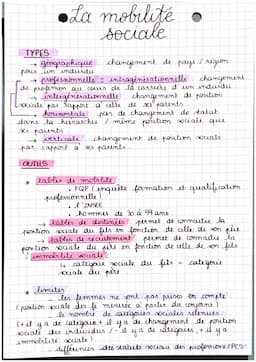 La mobilité
sociale
TYPES
→ géographique : changement de pays / région
pour un individu
→ professionnelle = intragénérationnelle : changement
de profession au cours de la carrière d'un individu
→ intergénérationnelle : changement de position
sociale par rapport à celle de ses parents
→ horizontale : pas de changement de statut
dans la hiérarchie / même position sociale que
ses parents
→ verticale : changement de position sociale
par rapport à ses parents
OUTILS
* tables de mobilité
→ FQP (enquête formation et qualification
professionnelle)
→ l'INSEE
→ hommes de 30 à 59 ans
→ tables de destinées : permet de connaître la
position sociale du fils en fonction de celle de son père
→ tables de recrutement : permet de connaître la
position sociale du père en fonction de celle de son fils
immobilité sociale :
↳ catégorie sociale du fils = catégorie
sociale du père
* limites :
- les femmes ne sont pas prises en compte
(position sociale des mesurée à partir du conjoint)
- le nombre de catégories sociales retenues :
(+ il y a de catégories, + il y a de changement de position
sociale des individus / - il y a de catégories, + il y a
immobilité sociale)
- différences des statuts sociaux des professions/PCS